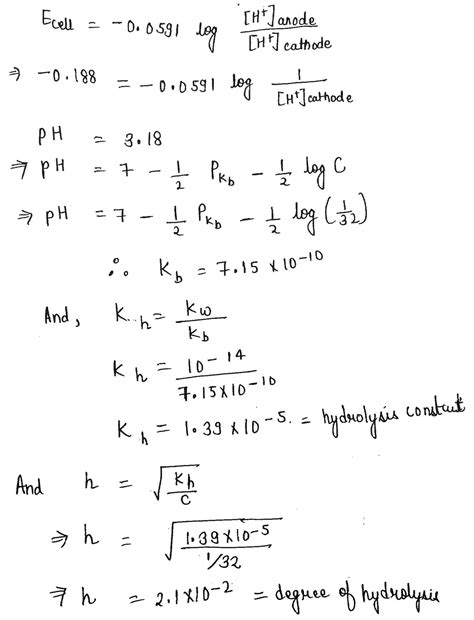 Ecell = -0.0591 log [H+]anode / [H+]cathode
⇒ -0.188 = -0.0591 log 1 / [H+]cathode
pH = 3.18
⇒ pH = 7 - 1/2 PKb - 1/2 log C
⇒ pH = 7 - 1/2 PKb - 1/2 log (1/32)
∴ Kb = 7.15 × 10-10
And, K..h = Kw / Kb
Kh = 10-14 / 7.15×10-10
Kh = 1.39 × 10-5. = hydrolysis constant
And h = √Kh/C
⇒ h = √1.39×10-5 / 1/32
⇒ h = 2.1×10-2 = degree of hydrolysis